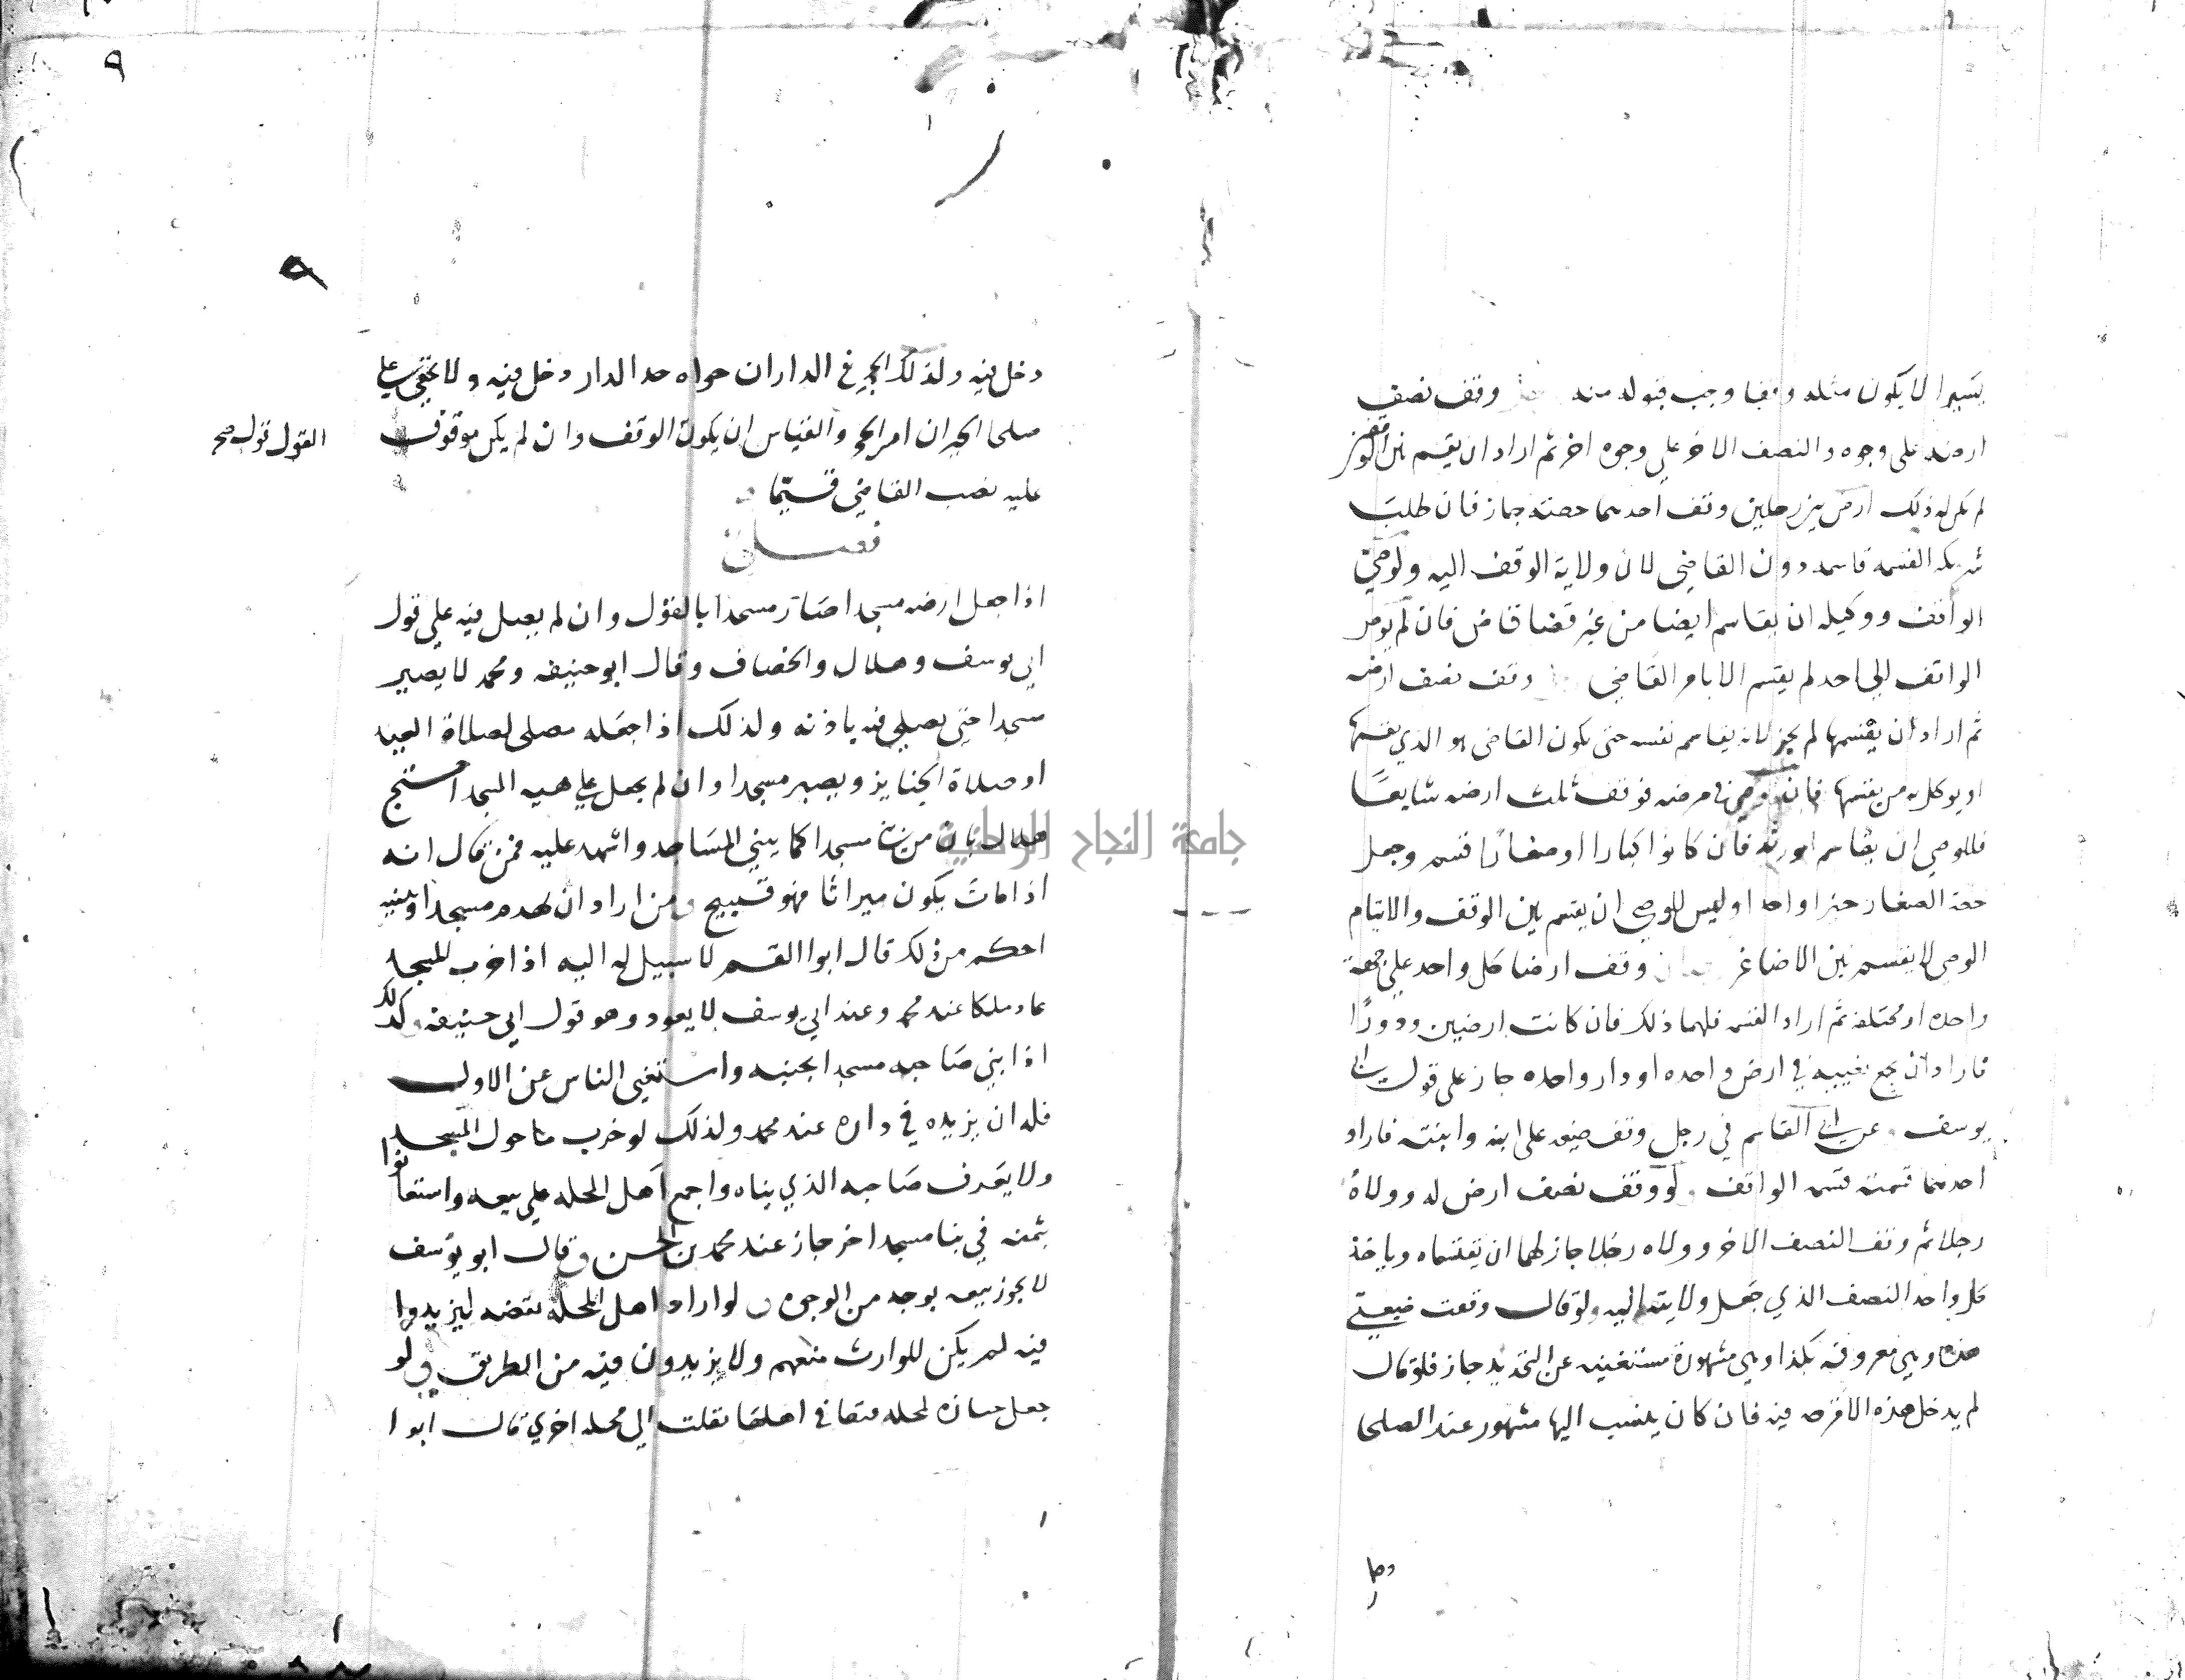 يسيرا لا يكون مثله وقفا وجب قبوله منه وقف نصف
ارضه على وجوه والنصف الاخر على وجوه اخر ثم اراد ان يقسم بين
لم يكن له ذلك ارض بين رجلين وقف احدهما حصته جاز فان طلب
شريكه القسمه قاسمه دون القاضي لان ولاية الوقف اليه ولوصي
الواقف ووكيله ان يقاسم ايضا من غير قضا قاض فان لم يوص
الواقف الى احد لم يقسم الا بامر القاضي وقف نصف ارضه
ثم اراد ان يقسمها لم يجز لانه يقاسم نفسه حتى يكون القاضي هو الذي يقسمها
او يوكل من يقسمها فان مرضه فوقف ثلث ارضه شايعا
فللوصي ان يقاسم الورثه فان كانوا كبارا او صغارا قسم وجعل
حصة الصغار حيزا واحدا وليس للوصي ان يقسم بين الوقف والايتام
الوصي لا يقسم بين الاصاغر وقف ارضا كل واحد على جهة
واحده او مختلفه ثم اراد القسمه فلهما ذلك فان كانت ارضين ودورا
فاراد ان يجمع نصيبه في ارض واحده او دار واحده جاز على قول ابي
يوسف عن ابي القاسم في رجل وقف ضيعه على ابنه وابنته فاراد
احدهما قسمته قسمه الواقف ولو وقف نصف ارض له وولاه
رجلا ثم وقف النصف الاخر وولاه رجلا جاز لهما ان يقتسماه وياخذ
كل واحد النصف الذي جعل ولايته اليه ولو قال وقفت ضيعتي
هذه وهي معروفه بكذا وهي مشهورة مستغنيه عن التحديد جاز فلو قال
لم يدخل هذه الاقرحه فيه فان كان ينسب اليها مشهور عند الصلحا
٩
٩
دخل فيه وكذلك الحجره في الدار ان حواه حد الدار دخل فيه ولا يخفى على
صلحا الجيران امر الحجره والقياس ان يكون الوقف وان لم يكن موقوف
القول قول صح
عليه نصب القاضي قيما
فصل
اذا جعل ارضه مسجدا صار مسجدا بالقول وان لم يصل فيه على قول
ابي يوسف وهلال والخصاف وقال ابو حنيفه ومحمد لا يصير
مسجدا حتى يصلى فيه باذنه وكذلك اذا جعله مصلى لصلاة العيد
او صلاة الجنايز ويصير مسجدا وان لم يجعل على هيه المسجد احتج
هلال بان من بنا مسجدا كما يبني المساجد واشهد عليه فمن قال انه
اذا مات يكون ميراثا فهو قبيح ومن اراد ان يهدم مسجدا ويبنيه
احكم من ذلك قال ابوا القسم لا سبيل له اليه اذا خرب المسجد
عاد ملكا عند محمد وعند ابي يوسف لا يعود وهو قول ابي حنيفه وكذلك
اذا بنى صاحبه مسجدا بجنبه واستغنى الناس عن الاول
فله ان يزيده في داره عند محمد وكذلك لو خرب ما حول المسجد
ولا يعرف صاحبه الذي بناه واجمع اهل المحله على بيعه واستعانوا
بثمنه في بنا مسجد اخر جاز عند محمد بن الحسن وقال ابو يوسف
لا يجوز بيعه بوجه من الوجوه ولو اراد اهل المحله نقضه ليزيدوا
فيه لم يكن للوارث منعهم ولا يزيدون فيه من الطريق ولو
جعل جنازه لمحله اهلها نقلت الى محله اخرى قال ابوا
جامعة النجاح الوطنية